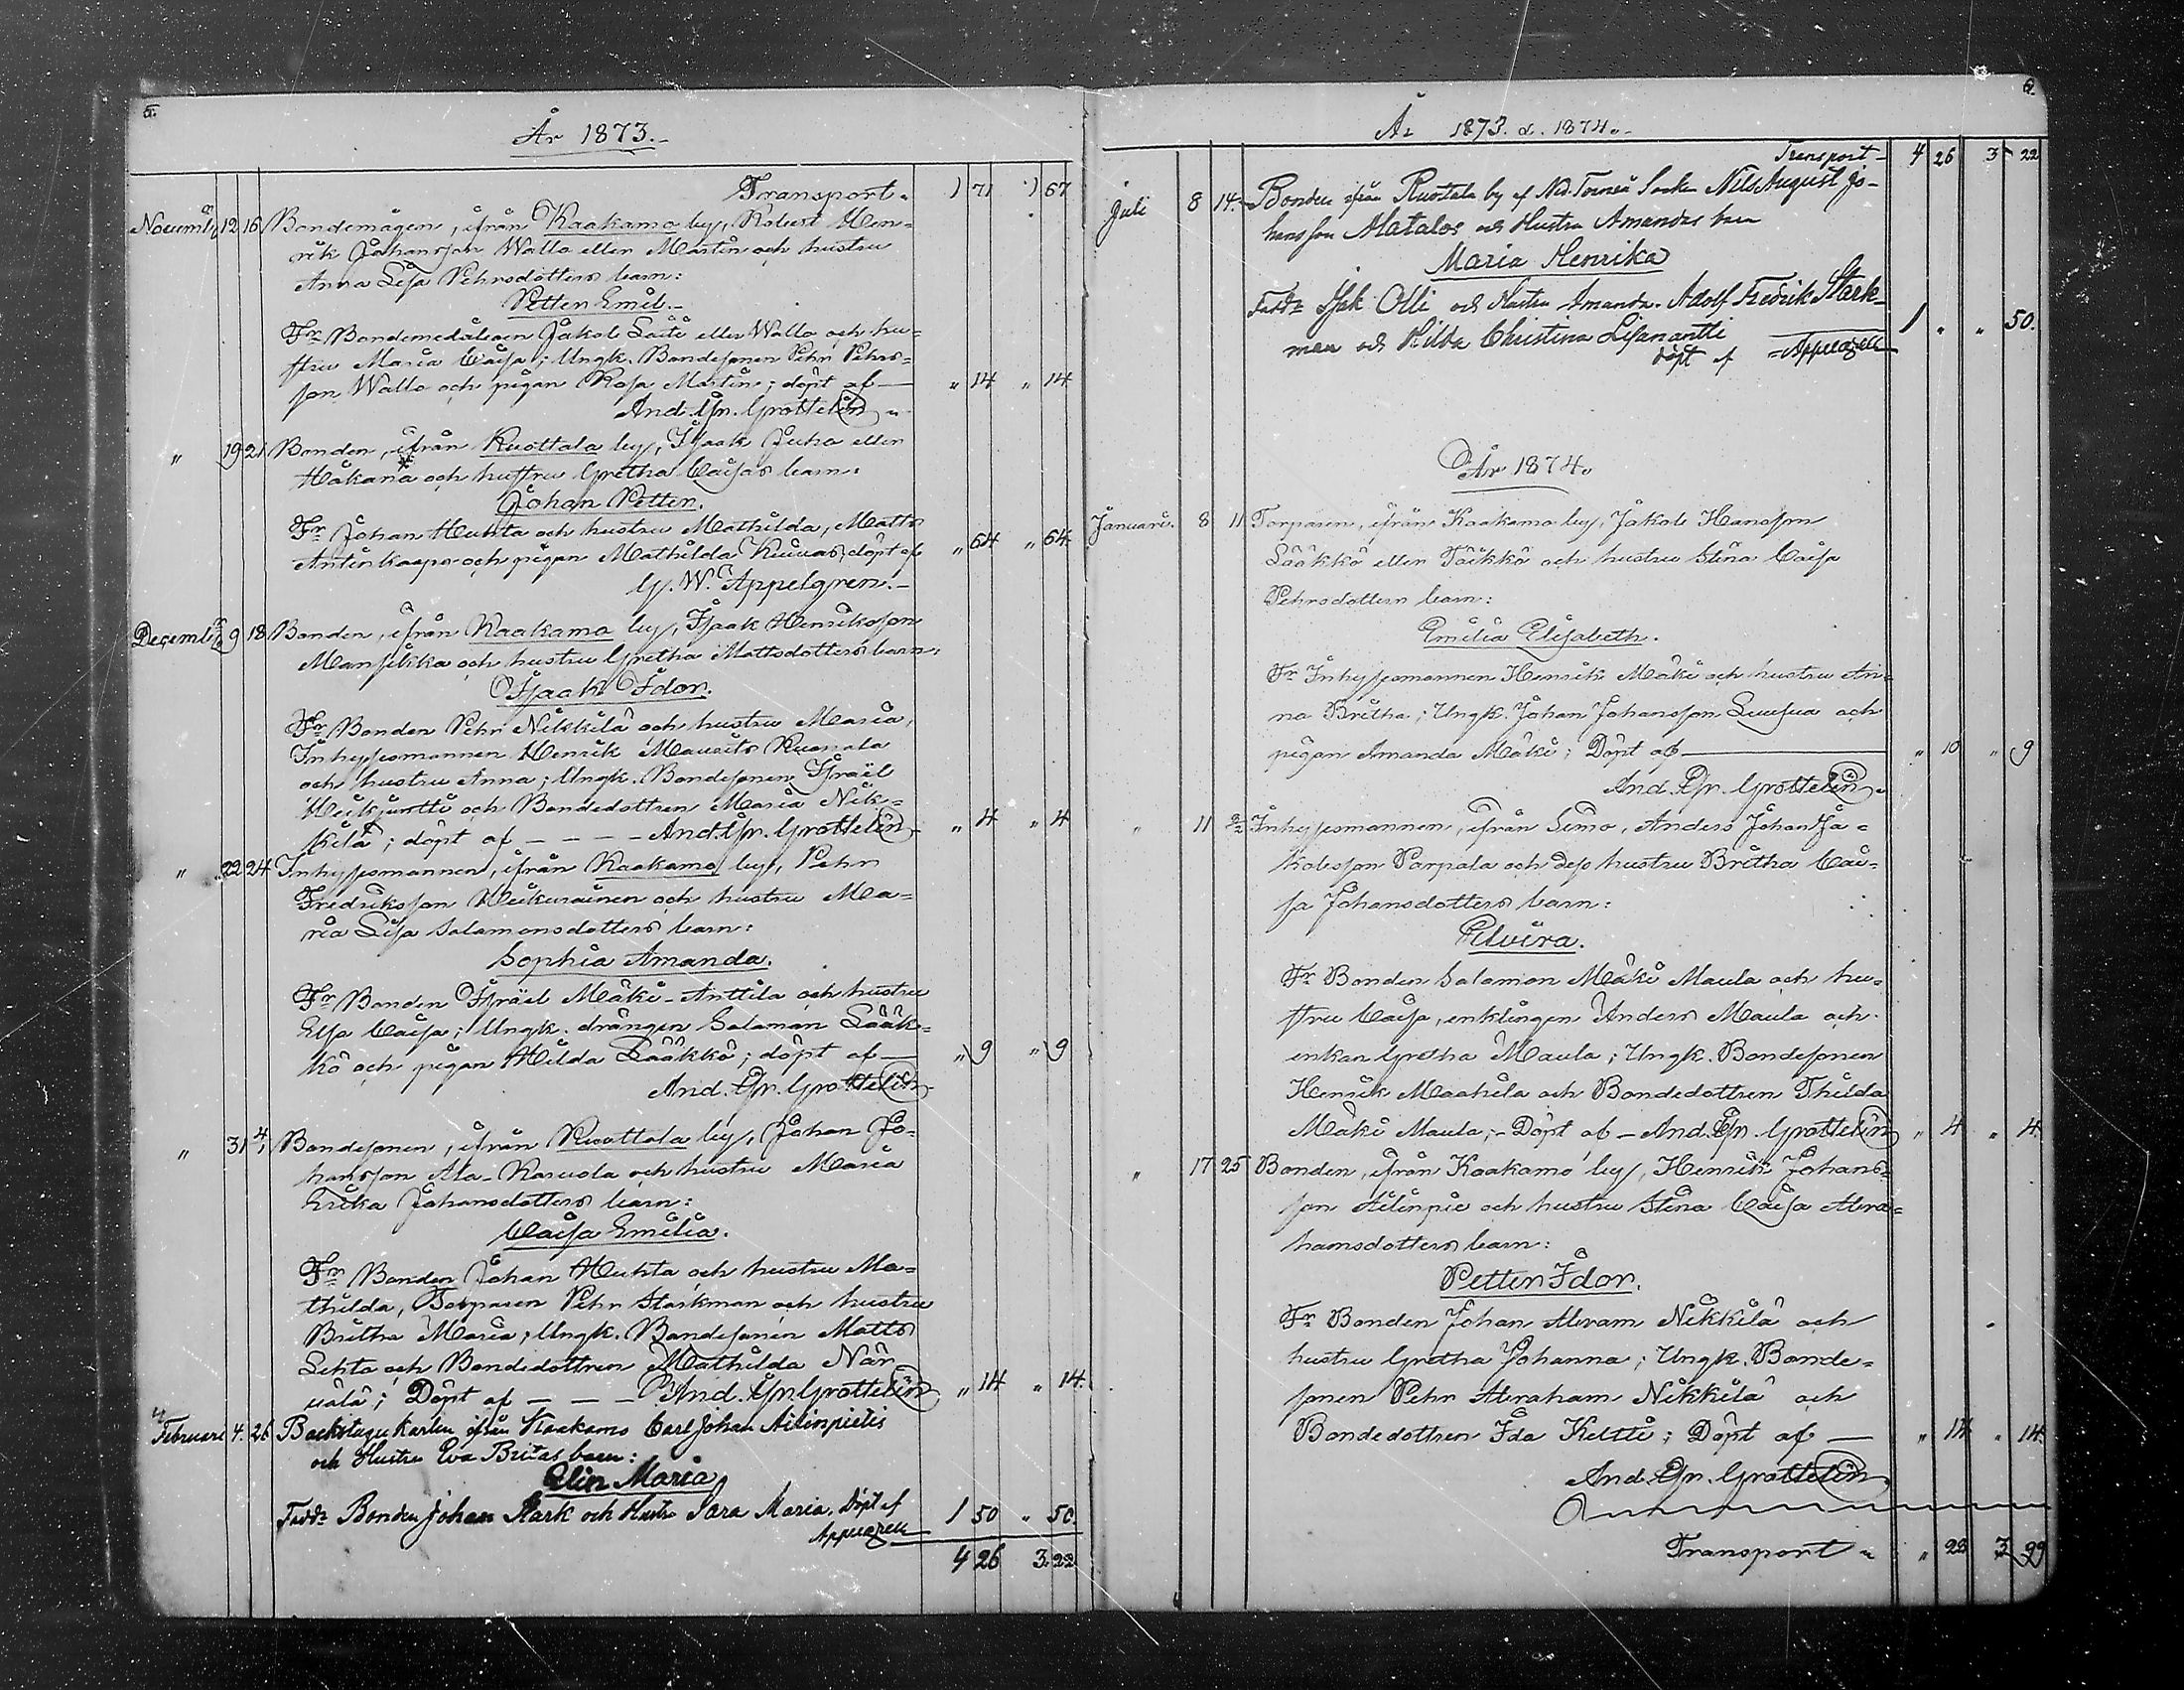 5.
År 1873.
Transport. 1 71 1 67
Novemb. 12 16 Bondemågen, ifrån Kaakamo by, Robert Hen-
rik Johansson Wallo eller Martin och hustru
Anna Lisa Pehrsdotters barn:
Petter Emil.
Fr Bondemedålaren Jakob Laiti eller Wallo och hu-
stru Maria Caisa; Ungk. Bondesonen Pehr Pehrs-
son Wallo och pigan Kajsa Martin; döpt af — " 14 " 14
And. Gr. Grottelin
" 19 21 Bonden, ifrån Ruottala by, Isaak Juho eller
Hakana och hustru Gretha Caisas barn:
Johan Petter.
Fr Johan Huhta och hustru Mathilda, Matts
Antinkaapo och pigan Mathilda Kuivas; döpt af " 64 " 64.
G. W. Appelgren.
Decemb. 9 18 Bonden, ifrån Kaakamo by, Isaak Henriksson
Mansikka och hustru Gretha Mattsdotters barn:
Isaak Idor.
Fr Bonden Pehr Nikkilä och hustru Maria,
Inhysesmannen Henrik Maurits Ruonala
och hustru Anna; Ungk. Bondesonen Israël
och Bondedottren Maria Nik-
kilä; döpt af — — — And. Gr. Grottelin " 4 " 4
" 22 24 Inhysesmannen, ifrån Kaakamo by, Pehr
Fredriksson Keikurainen och hustru Ma-
ria Lisa Salamonsdotters barn:
Sophia Amanda.
Fr Bonden Israël Mäki-Anttila och hustru
Elsa Caisa; Ungk. drängen Salamon Lääk-
kö och pigan Hilda Lääkkö; döpt af — " 9 " 9
And. Gr. Grottelin
" 31 4/1 Bondesonen, ifrån Ruottala by, Johan Jo-
hansson Ala-Karvola och hustru Maria
Erika Johansdotters barn:
Caisa Emilia.
Fr Bonden Johan Huhta och hustru Ma-
thilda, Torparen Pehr Starkman och hustru
Britha Maria; Ungk. Bondesonen Matts
Lehto och Bondedottren Mathilda När-
välä; Döpt af — — — And. Gr. Grottelin " 14 " 14.
Februari 4. 26 Backstugukarlen ifrån Kaakamo Carl Johan Ailinpietis
och Hustru Eva Britas barn:
Elin Maria
Faddr Bonden Johan Stark och Hustru Sara Maria. Döpt af 1 50 " 50.
Appelgren
4 26 3. 22
6.
År 1873. o. 1874.
Transport 4 26 3 22
Juli 8 14. Bonden ifrån Ruotala by af Ned. Torneå Socken Nils August Jo-
hansson Matalas och Hustru Amandas barn
Maria Henrika
Faddr Isak Olli och Hustru Amanda. Adolf Fredrik Stark-
man och Hilda Christina Lisanantti 1 " " 50.
döpt af Appelgren
År 1874.
Januari. 8 11 Torparen, ifrån Kaakamo by, Jakob Hansson
Lääkkö eller Töikkö och hustru Stina Caisa
Pehrsdotters barn:
Emilia Elisabeth.
Fr Inhysesmannen Henrik Mäki och hustru An-
na Britha; Ungk. Johan Johansson Luusua och
pigan Amanda Mäki; Döpt af — " 10 " 9
And. Gr. Grottelin
" 11 Inhysesmannen, ifrån Simo, Anders Johan Ja-
kobsson Parpala och dess hustru Britha Cai-
sa Johansdotters barn:
Elvira.
Fr Bonden Salamon Mäki Maula och hu-
stru Caisa, enklingen Anders Maula och
enkan Gretha Maula; Ungk. Bondesonen
Henrik Maahila och Bondedottren Thilda
Mäki Maula; — Döpt af — And. Gr. Grottelin " 4 " 4.
" 17 25 Bonden, ifrån Kaakamo by, Henrik Johans-
son Ailinpie och hustru Stina Caisa Abra-
hamsdotters barn:
Petter Idor.
Fr Bonden Johan Abram Nikkilä och
hustru Gretha Johanna; Ungk. Bonde-
sonen Pehr Abraham Nikkilä och
Bondedottren Ida Keltti; Döpt af — " 14 " 14.
And. Gr. Grottelin
Transport " 28 3 29